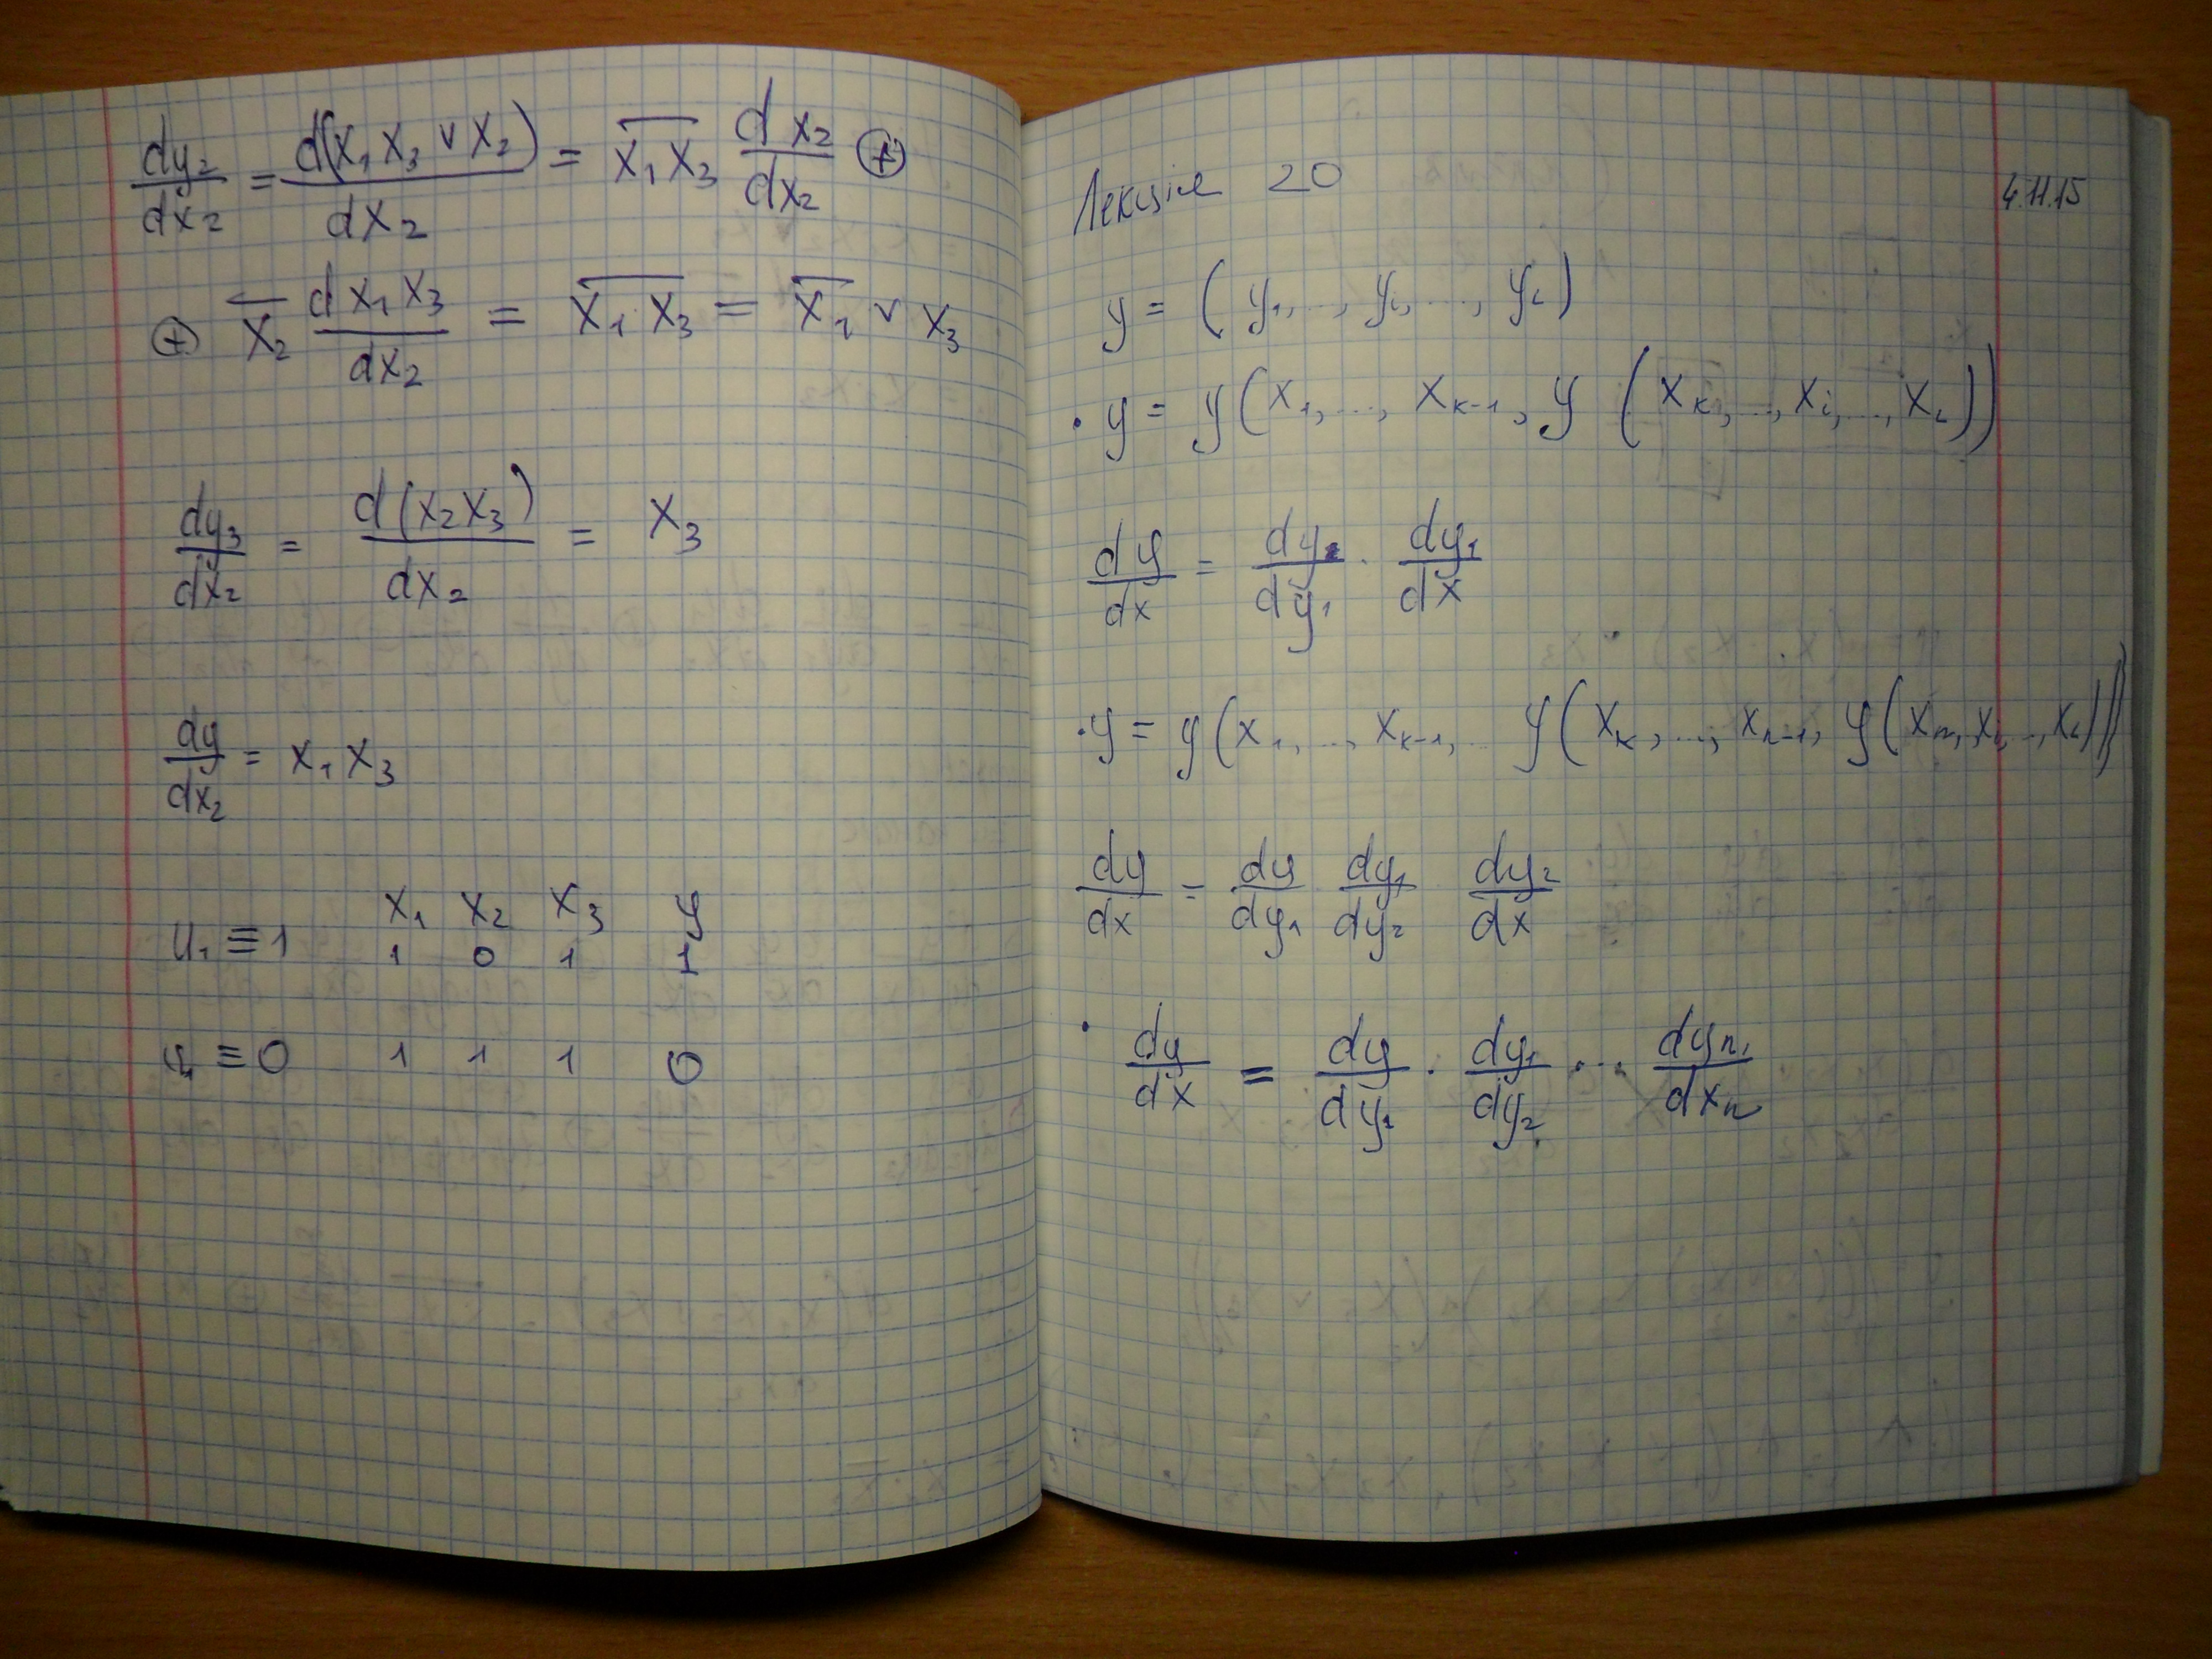 dy₂/dx₂ = d(x₁ x₃ ∨ x₂)/dx₂ = x̅₁̅ ̅x̅₃̅ dx₂/dx₂ ⊕
⊕ x̅₂ dx₁x₃/dx₂ = x̅₁̅ ̅x̅₃̅ = x̅₁ ∨ x₃
dy₃/dx₂ = d(x₂x₃)/dx₂ = x₃
dy/dx₂ = x₁ x₃
x₁ x₂ x₃ y
u₁ ≡ 1 1 0 1 1
≡ 0 1 1 1 0
Лекція 20 4.11.15
y = (y₁, ..., yᵢ, ..., y)
· y = y(x₁, ..., xₖ₋₁, y(xₖ, ..., xᵢ, ..., x))
dy/dx = dy/dy₁ · dy₁/dx
· y = y(x₁, ..., xₖ₋₁, ... y(xₖ, ..., xₙ₋₁, y(xₙ, xᵢ, ..., x)))
dy/dx = dy/dy₁ dy₁/dy₂ dy₂/dx
· dy/dx = dy/dy₁ · dy₁/dy₂ ... dyₙ₁/dxₙ